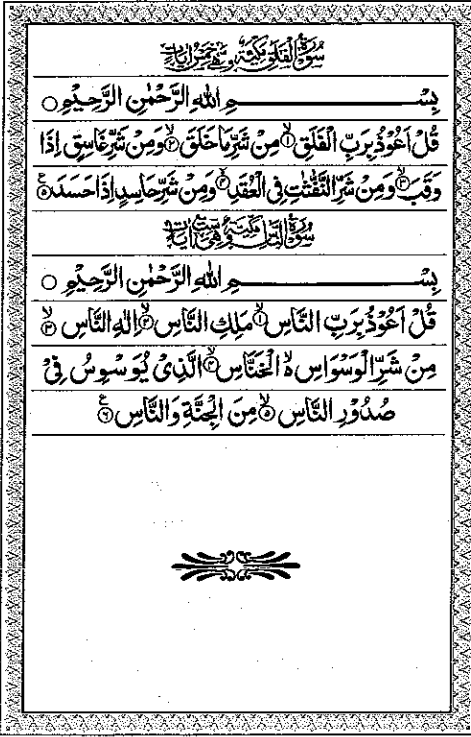 سُوْرَةُ الْفَلَقِ مَكِّيَّةٌ وَّهِيَ خَمْسُ اٰيَاتٍ
بِسْمِ اللهِ الرَّحْمٰنِ الرَّحِيْمِ ○
قُلْ اَعُوْذُ بِرَبِّ الْفَلَقِ ۙ﴿۱﴾ مِنْ شَرِّ مَا خَلَقَ ۙ﴿۲﴾ وَمِنْ شَرِّ غَاسِقٍ اِذَا
وَقَبَ ۙ﴿۳﴾ وَمِنْ شَرِّ النَّفّٰثٰتِ فِی الْعُقَدِ ۙ﴿۴﴾ وَمِنْ شَرِّ حَاسِدٍ اِذَا حَسَدَ ﴿۵﴾ ع
سُوْرَةُ النَّاسِ مَكِّيَّةٌ وَّهِيَ سِتُّ اٰيَاتٍ
بِسْمِ اللهِ الرَّحْمٰنِ الرَّحِيْمِ ○
قُلْ اَعُوْذُ بِرَبِّ النَّاسِ ۙ﴿۱﴾ مَلِكِ النَّاسِ ۙ﴿۲﴾ اِلٰهِ النَّاسِ ۙ﴿۳﴾
مِنْ شَرِّ الْوَسْوَاسِ ۙ۬ الْخَنَّاسِ ۙ﴿۴﴾ الَّذِیْ یُوَسْوِسُ فِیْ
صُدُوْرِ النَّاسِ ۙ﴿۵﴾ مِنَ الْجِنَّةِ وَالنَّاسِ ﴿۶﴾ ع